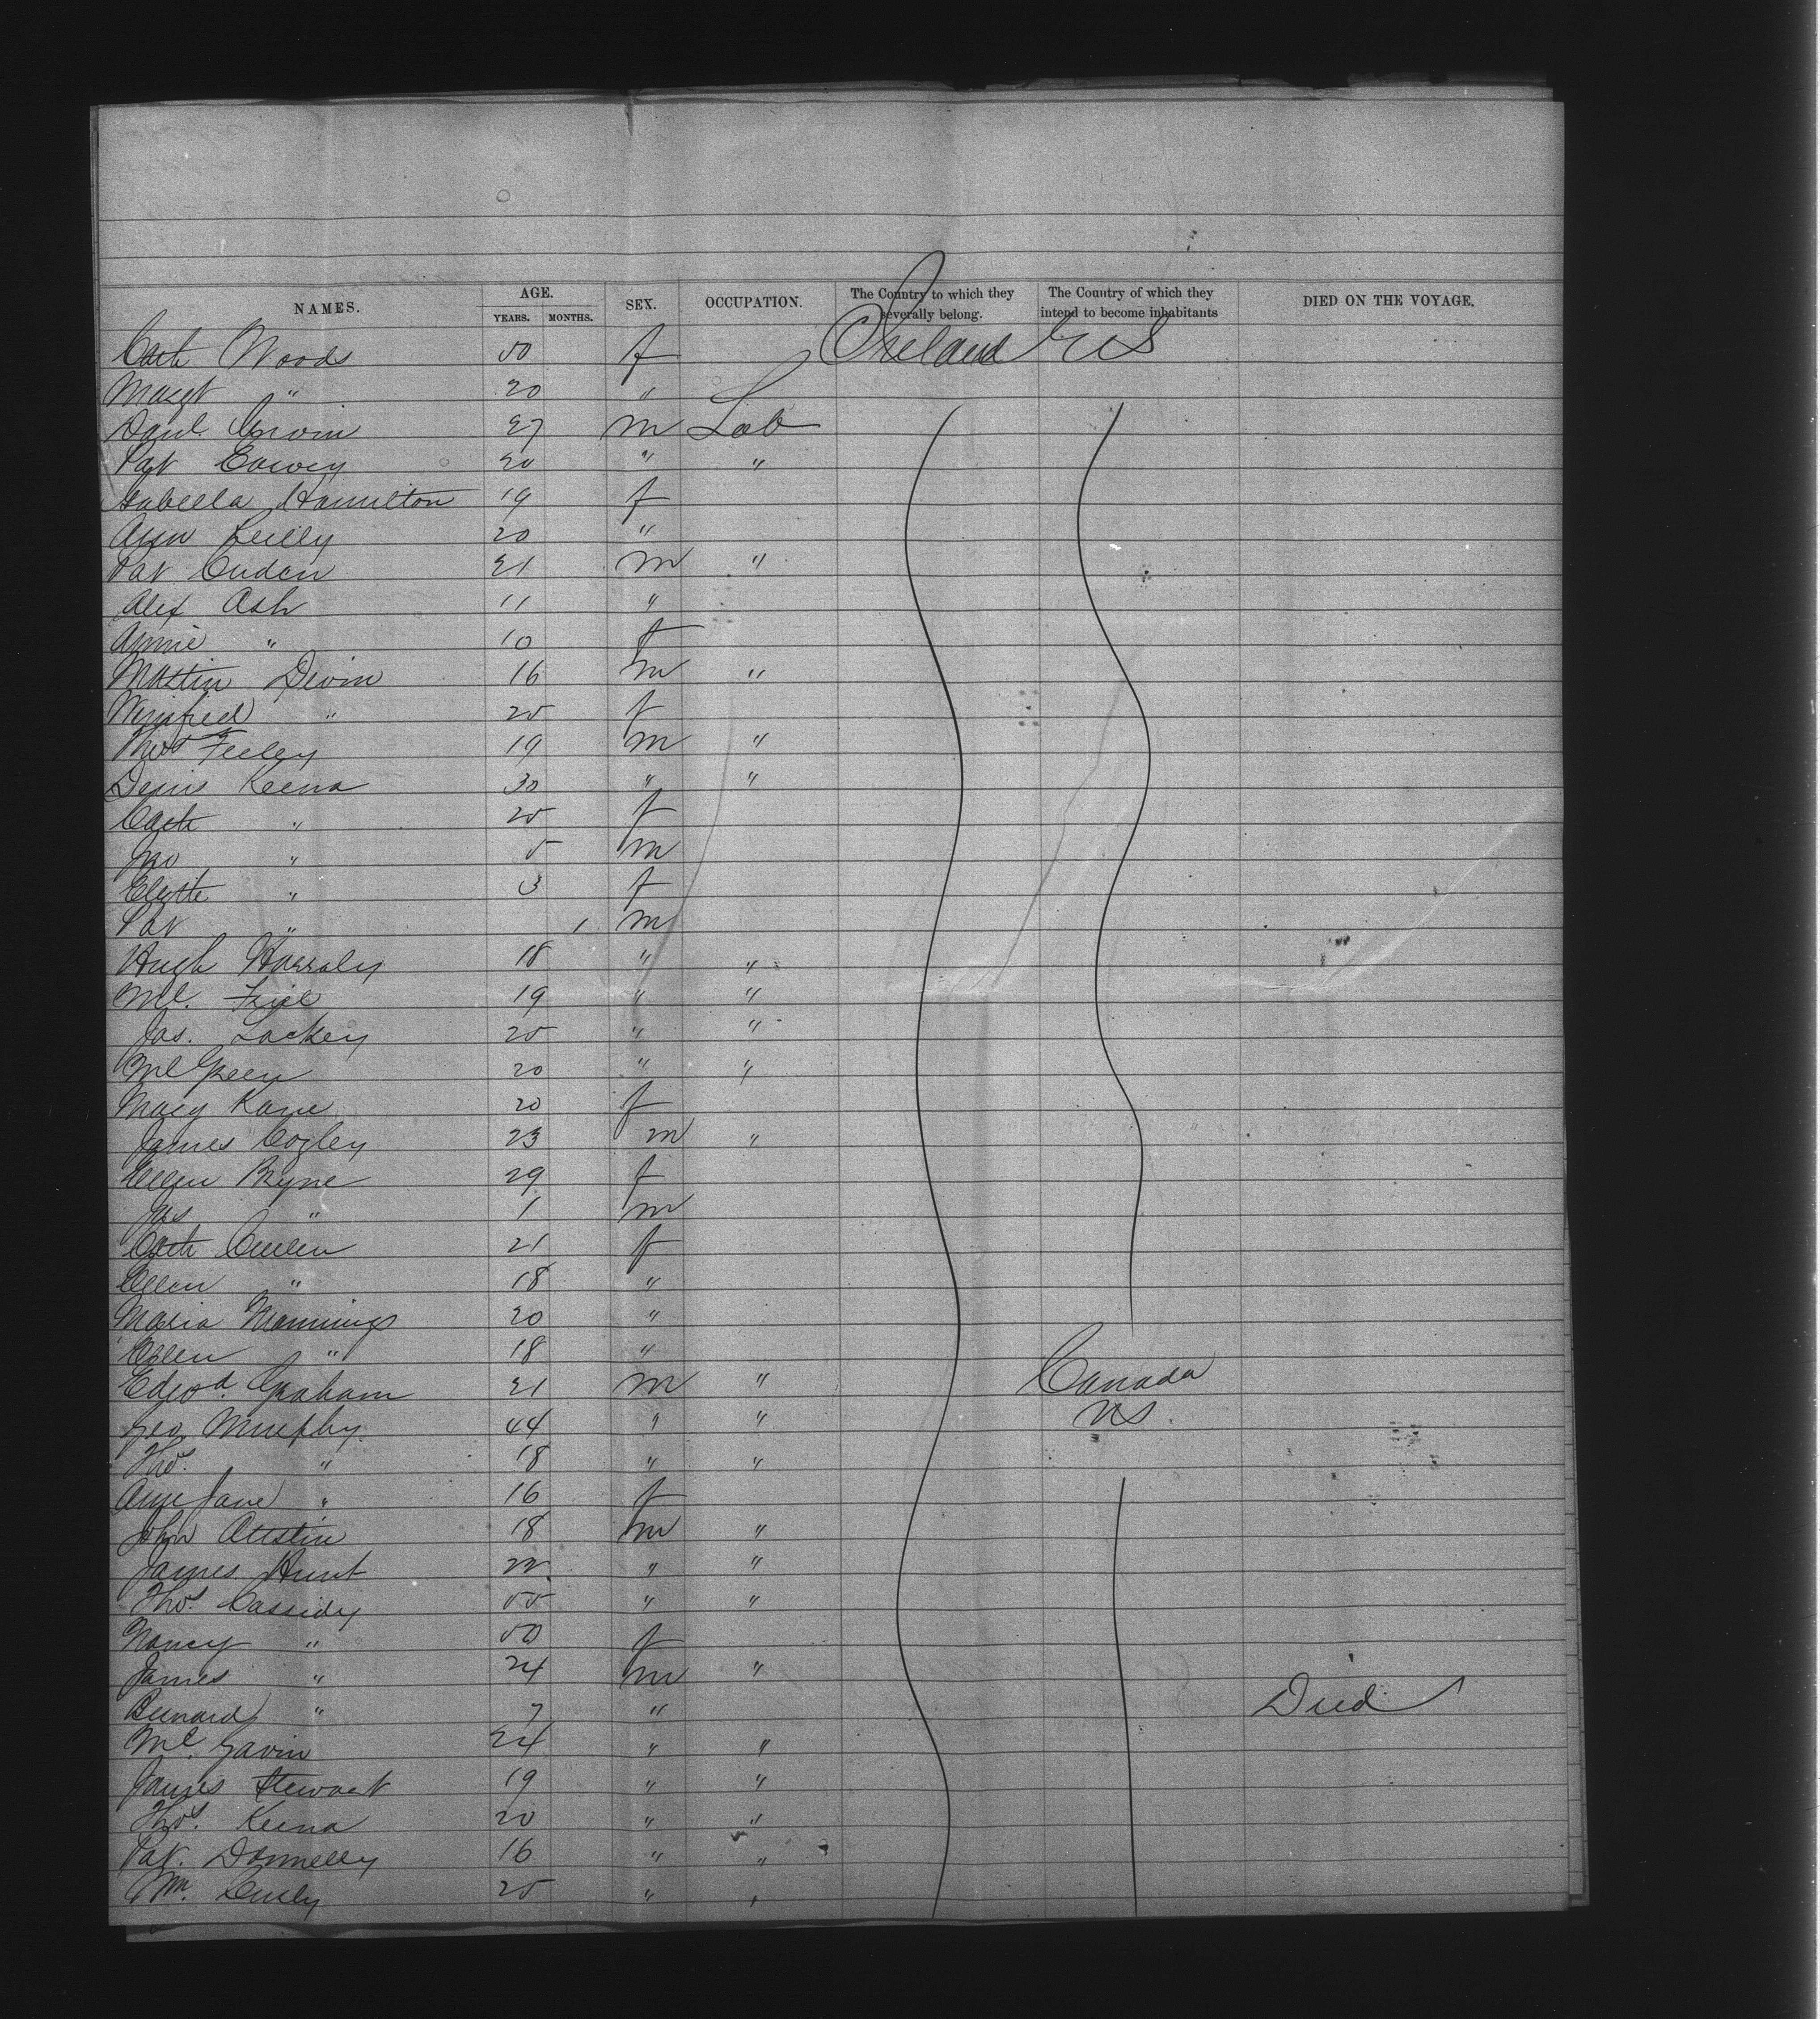 NAMES. AGE. YEARS. MONTHS. SEX. OCCUPATION. The Country to which they severally belong. The Country of which they intend to become inhabitants DIED ON THE VOYAGE.
Cath Woods 50 f Ireland US
Margt " 20 "
Danl. 27 m Lab
Pat 20 " "
Isabella Hamilton 19 f
Ann 20 "
Pat 21 m "
Alex Ash 11 "
Annie " 10 f
Martin Devin 16 m "
Winifred " 25 f
Thos Feeley 19 m "
Denis Keena 30 " "
Cath " 25 f
Jno " 5 m
" 3 f
Pat " 1 m
Hugh 18 " "
Ml. 19 " "
Jas. Lackey 25 " "
Ml Green 20 " "
Mary Kane 20 f
James Cogley 23 m "
Ellen Byrne 29 f
Jas " 1 m
Cath Cullen 21 f
Ellen " 18 "
Maria Mannings 20 "
Ellen " 18 "
Edwd. Graham 21 m " Canada
Geo Murphy 44 " " US.
Thos. " 18 " "
Ann Jane " 16 f
John Austin 18 m "
James Hunt 22 " "
Thos. Cassidy 55 " "
Nancy " 50 f
James " 24 m "
Bernard " 7 " Died
Ml. Gavin 24 " "
James Stewart 19 " "
Thos. Keena 20 " "
Pat. Donnelly 16 " "
Wm. 25 " "